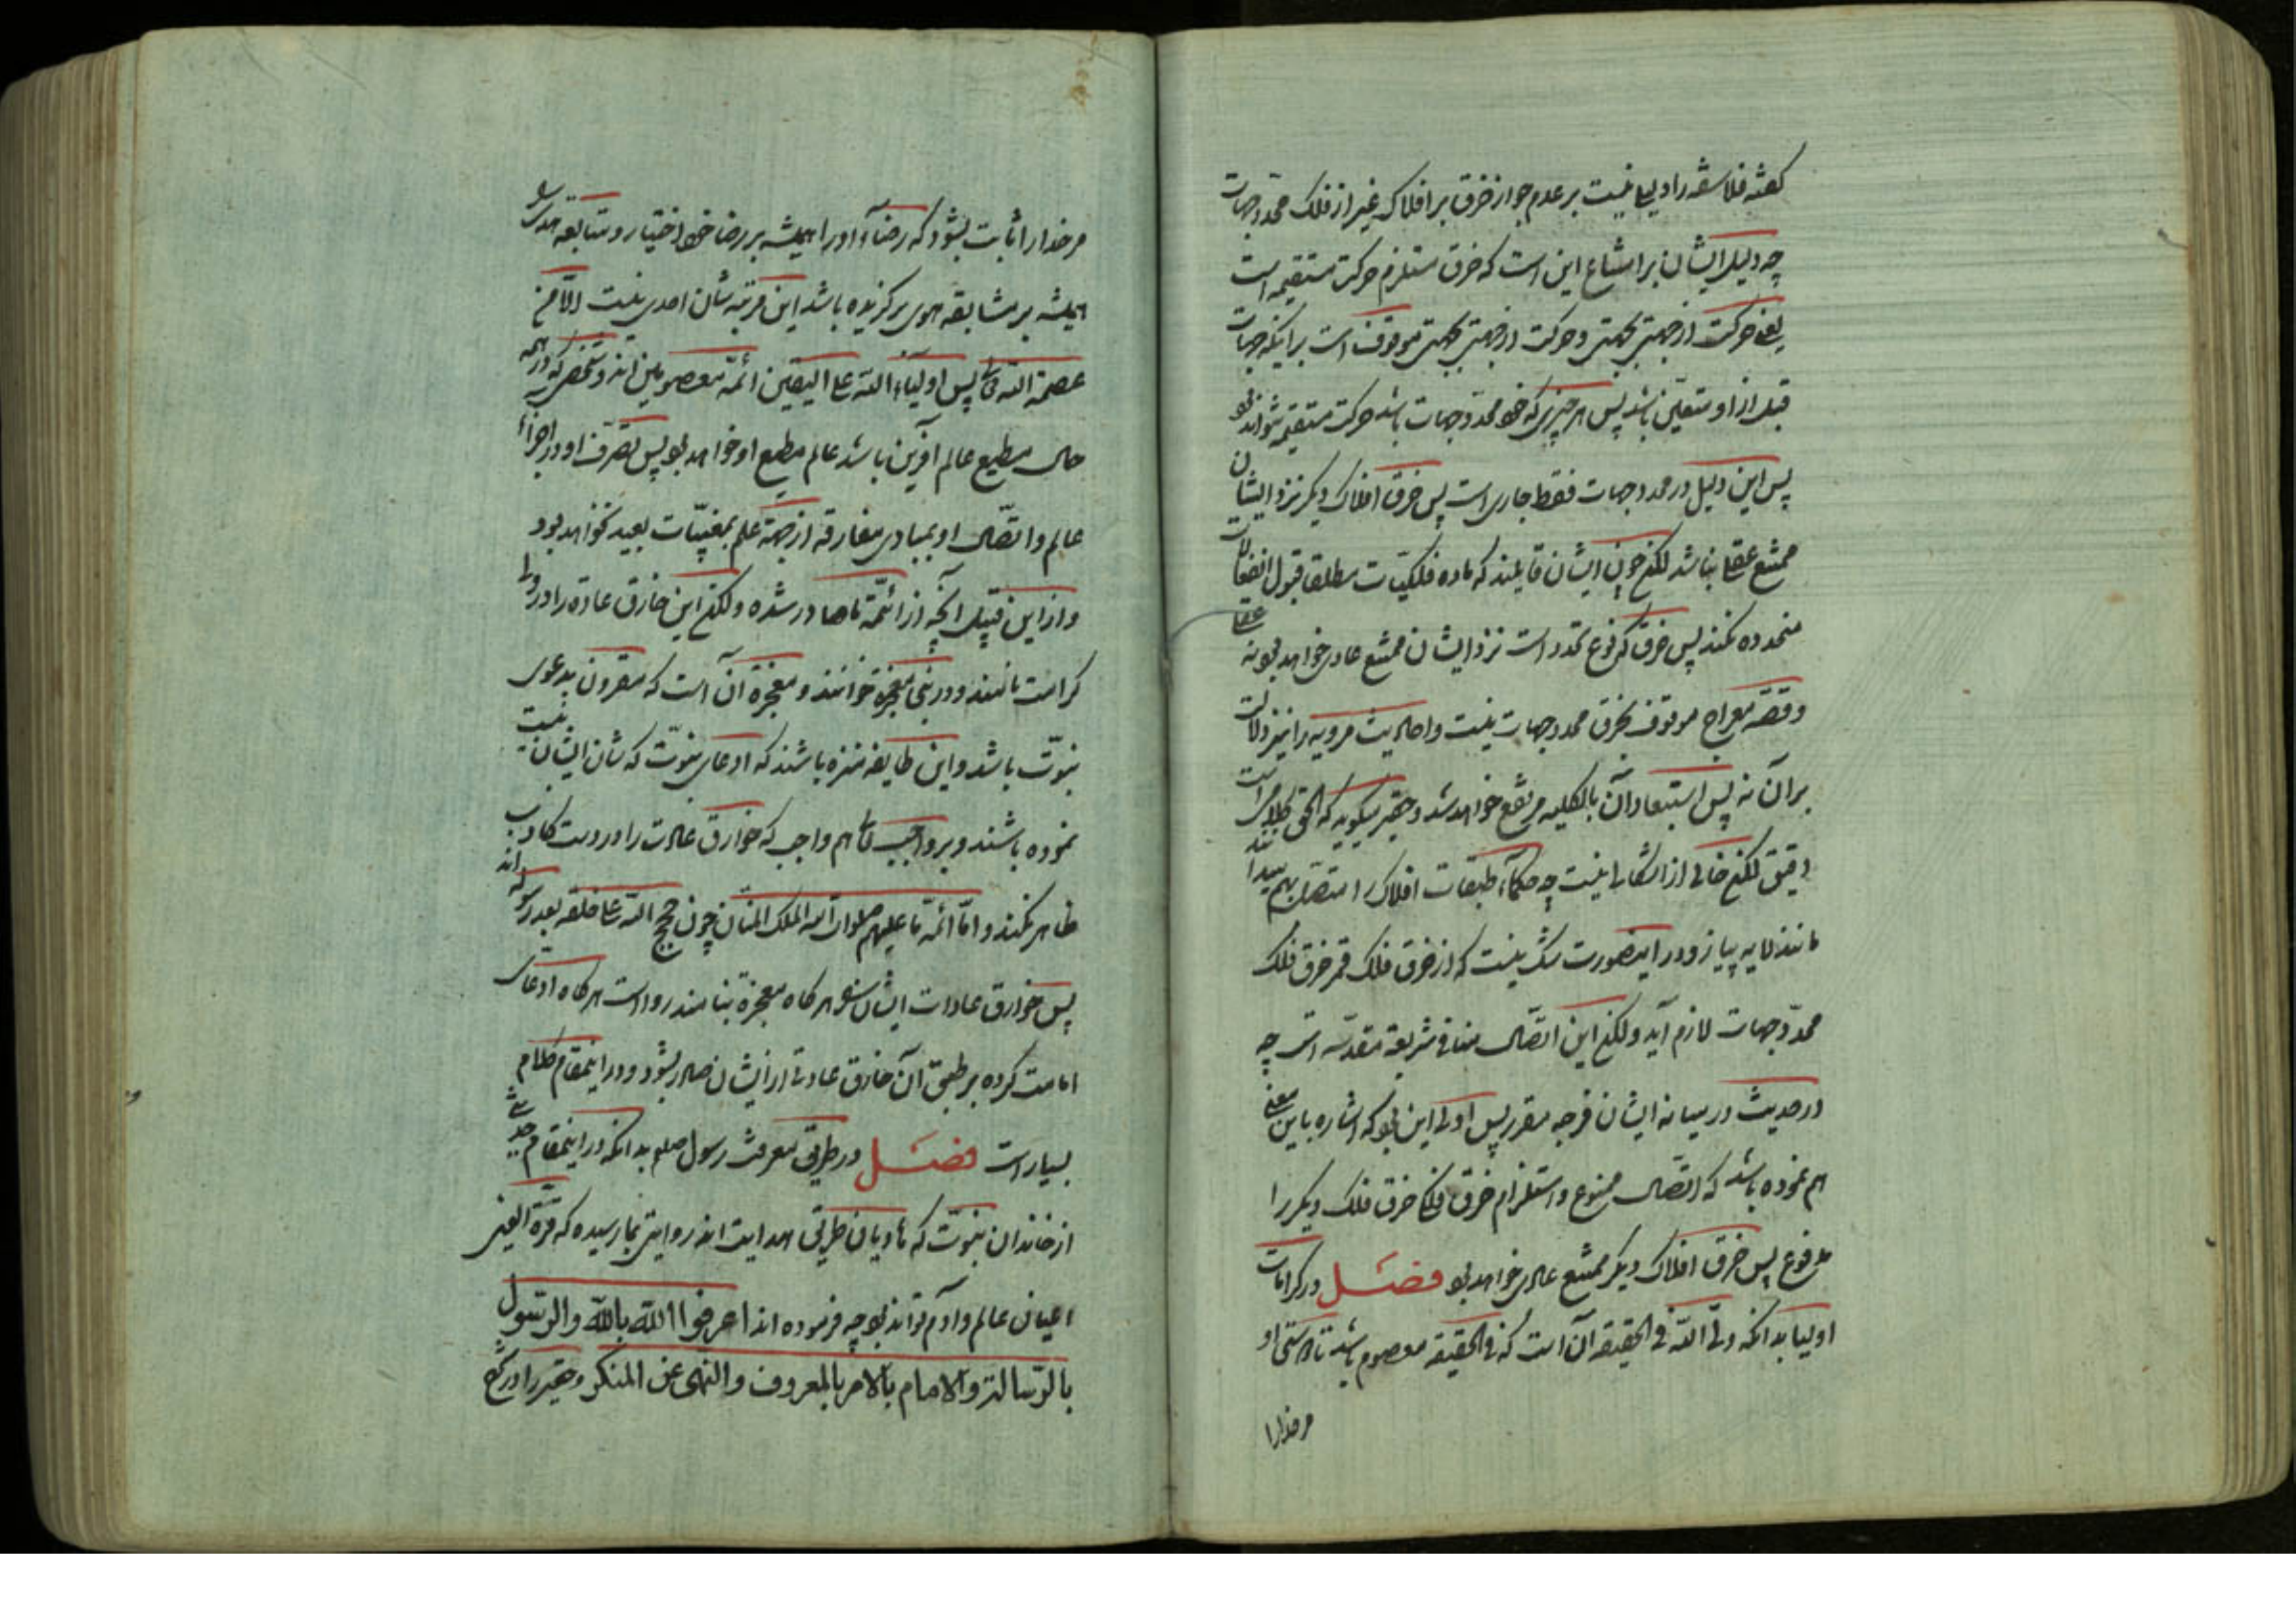 گفته فلاسفه را دلیلی نیست بر عدم جواز خرق بر افلاک غیر از فلک محدد جهات
چه دلیل ایشان بر امتناع این است که خرق مستلزم حرکت مستقیمه است
یعنی حرکت از جهتی بجهتی و حرکت از جهتی بجهتی موقوف است بر اینکه جهات
قبل از او متعین باشد پس هر چیزی که خود محدد جهات باشد حرکت مستقیمه نتواند نمود
پس این دلیل در محدد جهات فقط جاری است پس خرق افلاک دیگر نزد ایشان
ممتنع عقلی نباشد لکن چون ایشان قایلند که ماده فلکیات مطلقا قبول انفعالات
متجدده نکند پس خرق که نوع تجدد است نزد ایشان ممتنع عادی خواهد بود نه عقلی
و قصه معراج موقوف بخرق محدد جهات نیست و احادیث مرویه را نیز دلالت
بر آن نه پس استبعاد آن بالکلیه مرتفع خواهد شد و حقیر میگوید که الحق کلامی است
دقیق لکن خالی از اشکالی نیست چه حکماء طبقات افلاک را متصل بهم میدانند
مانند لایه پیاز و در اینصورت شک نیست که از خرق فلک قمر خرق فلک
محدد جهات لازم آید و لکن این اتصال منافی شریعة مقدسه است چه
در حدیث در میانه ایشان فرجه مقرر پس اولی این بود که اشاره باین معنی
هم نموده باشد که اتصال ممنوع و استلزام خرق فلک خرق فلک دیگر را
مدفوع پس خرق افلاک دیگر ممتنع عادی خواهد بود فصل در کرامات
اولیا بدانکه ولی الله فی الحقیقه آن است که فی الحقیقه معصوم باشد تا دوستی او
مر خدا را
مر خدا را ثابت بشود که رضاء او را همیشه بر رضا خود اختیار و متابعة هدی
همیشه بر متابعة هوی برگزیده باشد این مرتبه شان احدی نیست الا من
عصمه الله تعالی پس اولیاء الله علی الیقین ائمه معصومین اند و شخصی که در همه
حال مطیع عالم آفرین باشد عالم مطیع او خواهد بود پس تصرف او در اجزاء
عالم و اتصال او بمبادی مفارقه از جهة علم بمغیبات بعید نخواهد بود
و از این قبیل آنچه از ائمه ما صادر شده و لکن این خارق عادة را در ولی
کرامت نامند و در نبی معجزه خوانند و معجزه آن است که مقرون بدعوی
نبوت باشد و این طایفه منزه باشند که ادعای نبوت که شان ایشان نیست
نموده باشند و بر واجب تعالی هم واجب که خوارق عادت را در دست کاذب
ظاهر نکند و اما ائمه ما علیهم صلوات الله الملک المنان چون حجج الله علی خلقه بعد رسوله اند
پس خوارق عادات ایشان هرگاه معجزة بنامند روا است هرگاه ادعای
امامت کرده بر طبق آن خارق عادتی از ایشان صادر بشود و در اینمقام کلام
بسیار است فصل در طریق معرفت رسول صلعم بدانکه در اینمقام حدیثی
از خاندان نبوت که هادیان طریق هدایت اند روایتی بما رسیده که قرة العین
اعیان عالم و آدم تواند بود چه فرموده اند اعرفوا الله بالله والرسول
بالرسالة والامام بالامر بالمعروف والنهی عن المنکر و حقیر را در